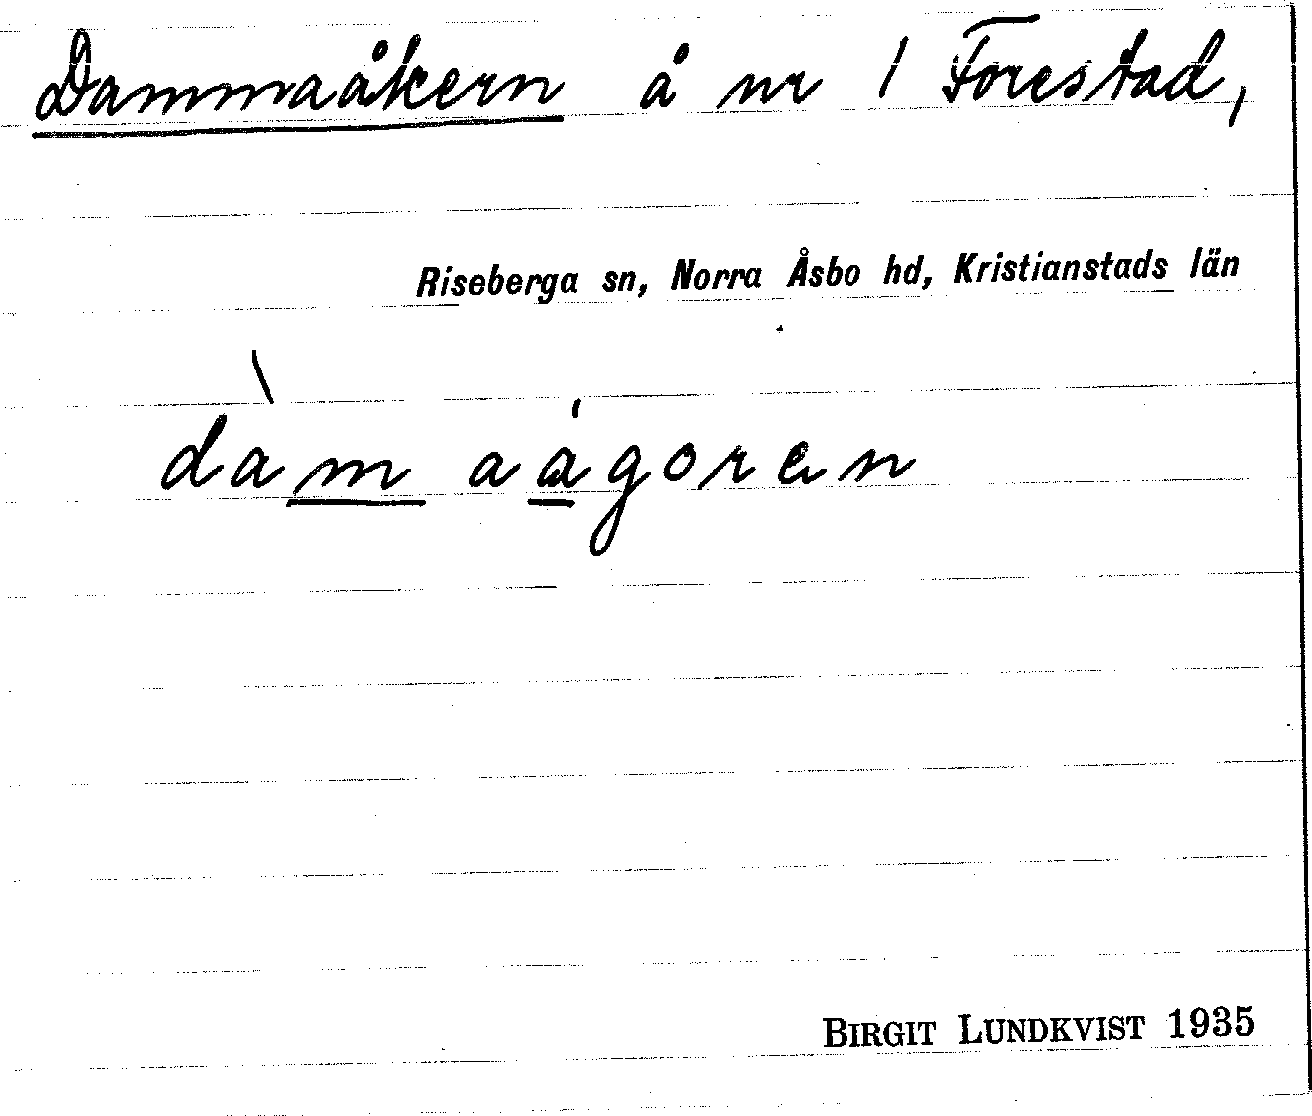 Dammaåkern å nr 1 Forestad,
Riseberga sn, Norra Åsbo hd, Kristianstads län
dàm aágoren
BIRGIT LUNDKVIST 1935